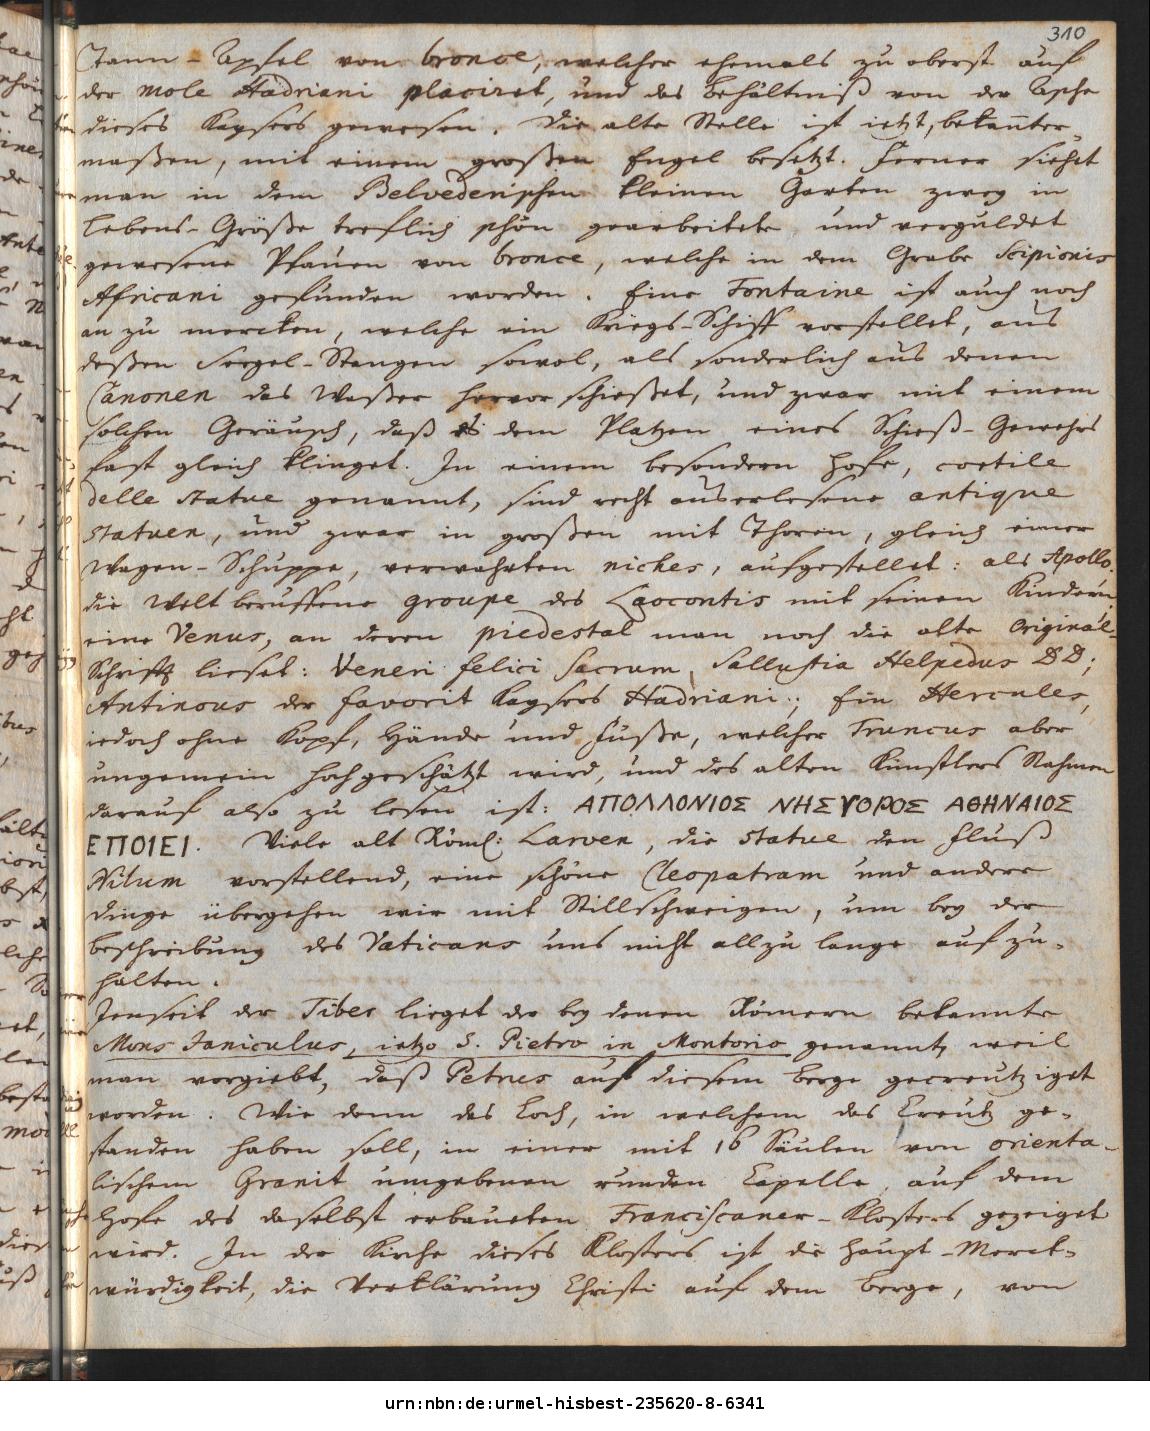 310
Tann-Apfel von bronce, welcher ehemals zu oberst auf
der mole Hadriani placiret, und das Behältniß von der Asche
dieses Kaysers gewesen. Die alte Stelle ist ietzt, bekañter-
maßen, mit einem großen Engel besetzt. Ferner siehet
man in dem Belvederischen kleinen Garten zwey in
Lebens-Größe treflich schön gearbeitete und verguldet
gewesene Pfauen von bronce, welche in dem Grabe Scipionis
Africani gefunden worden. Eine Fontaine ist auch noch
an zu mercken, welche ein Kriegs-Schiff vorstellet, aus
deßen Seegel-Stangen sowol, als sonderlich aus denen
Canonen das Waßer hervor schießet, und zwar mit einem
solchen Geräusch, daß es dem Platzen eines Schieß-Gewehrs
fast gleich klinget. In einem besondern Hofe, cortile
delle statue genannt, sind recht auserlesene antique
statuen, und zwar in großen mit Thoren, gleich einer
Wagen-Schuppe, verwahrten niches, aufgestellet: als Apollo.
die Welt beruffene groupe des Laocontis mit seinen Kindern,
eine Venus, an deren piedestal man noch die alte Original-
Schrifft lieset: Veneri felici Sacrum, Sallustia Helpedus DD;
Antinous der favorit Kaysers Hadriani; Ein Hercules,
iedoch ohne Kopf, Hände und Füße, welcher Truncus aber
ungemein hoch geschätzt wird, und des alten Künstlers Nahmen
darauf also zu lesen ist: ΑΠΟΛΛΟΝΙΟΣ ΝΗΣΥΟΡΟΣ ΑΘΗΝΑΙΟΣ
ΕΠΟΙΕΙ. Viele alt Röml: Larven, die statue den Fluß
Nilum vorstellend, eine schöne Cleopatram und andere
dinge übergehen wir mit Stillschweigen, um bey der
beschreibung des Vaticans uns nicht allzu lange auf zu-
halten.
Jenseit der Tiber lieget der bey denen Römern bekannte
Mons Janiculus, ietzo S. Pietro in Montorio genannt, weil
man vorgiebt, daß Petrus auf diesem Berge gecreutziget
worden. Wie denn das Loch, in welchem das Creutz ge-
standen haben soll, in einer mit 16 Säulen von orienta-
lischem Granit umgebenen runden Capelle auf dem
Hofe des daselbst erbaueten Franciscaner-Klosters gezeiget
wird. In der Kirche dieses Klosters ist die Haupt-Merck-
würdigkeit, die Verklärung Christi auf dem Berge, von
urn:nbn:de:urmel-hisbest-235620-8-6341